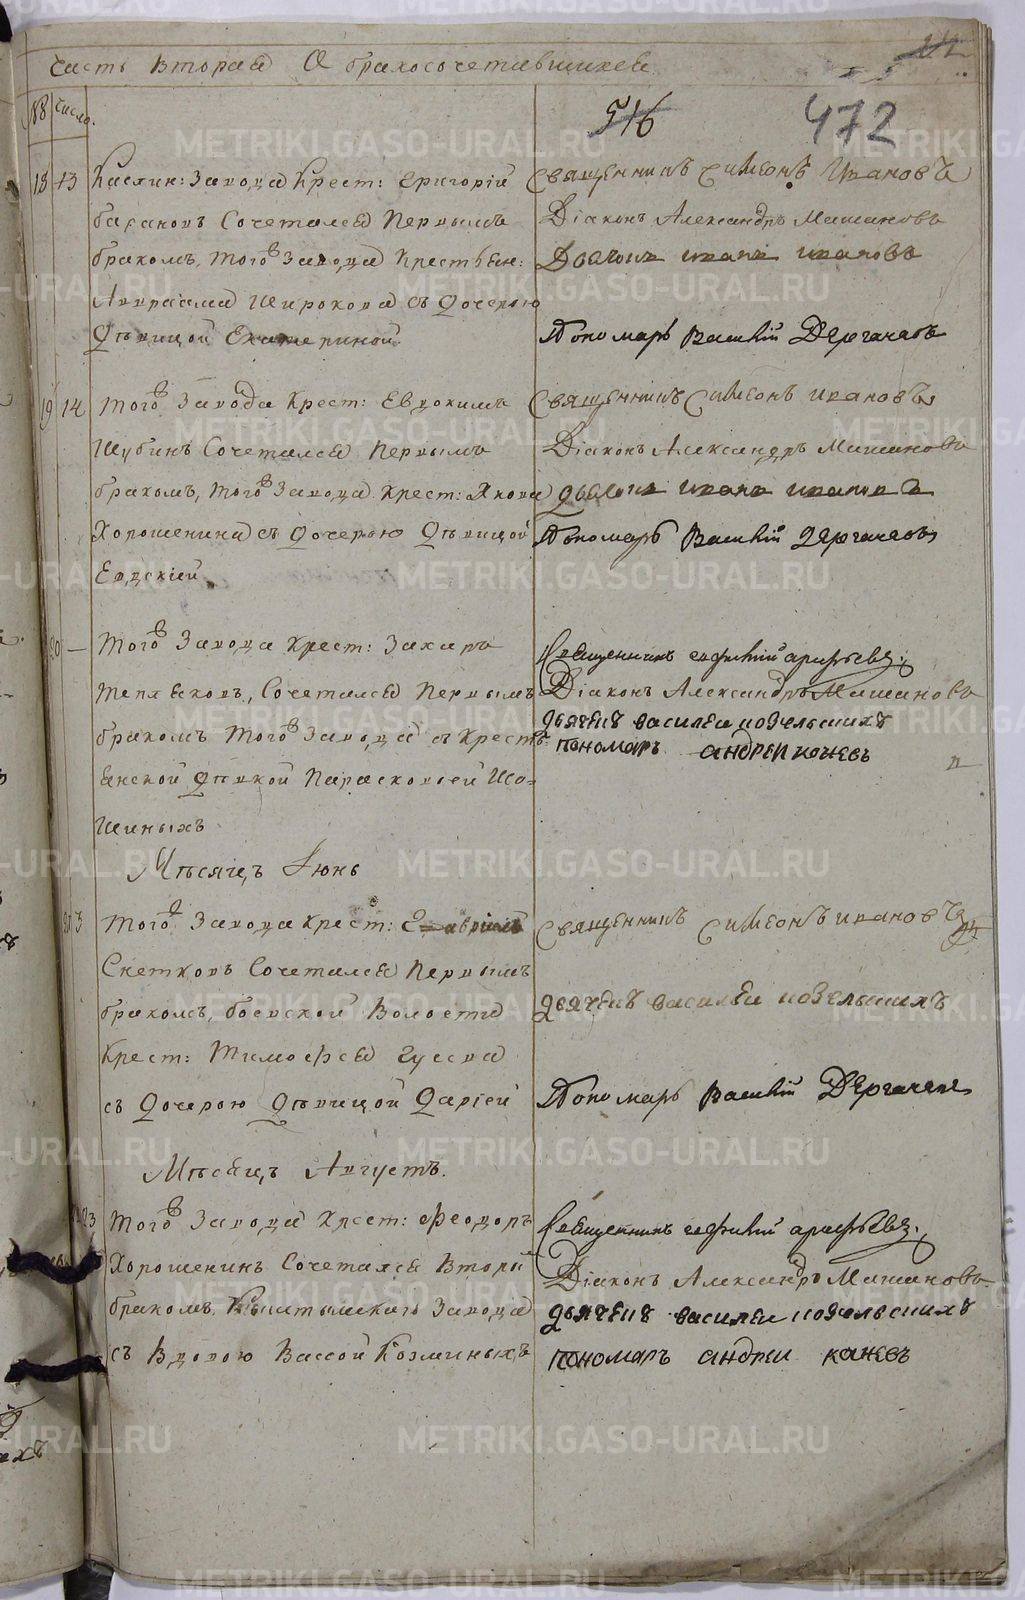 Часть Вторая О бракосочетавшихся
№ Число.
516 472
18 13 Каслин: Завода Крест: Григорій
Барановъ Сочетался Первымъ
бракомъ, того Завода Крестьян:
Авраама Широкова съ Дочерью
Дѣвицой Екатериной
Священникъ Симеонъ Ивановъ
Діаконъ Александръ Машановъ
Дьячокъ Иванъ Ивановъ
Пономарь Василій Дергачевъ
19 14 того Завода Крест: Евдокимъ
Шубинъ Сочетался Первымъ
бракомъ, того Завода Крест: Якова
Хорошенина съ Дочерью Дѣвицой
Евдокіей
Священникъ Симеонъ Ивановъ
Діаконъ Александръ Машановъ
дьячокъ Иванъ Ивановъ
Пономарь Василій Дергачевъ
20 — того Завода Крест: Захаръ
Сочетался Первымъ
бракомъ того Завода съ Крестъ
янской Дѣвкой Парасковьей Шо-
шиныхъ
Священникъ арефьевъ
Діаконъ Александръ Машановъ
дьячекъ василеи
пономарь андреи
Мѣсяцъ Іюнь
3 того Завода Крест:
Сочетался Первымъ
бракомъ, Волости
Крест: Тимофея Гусева
съ Дочерью Дѣвицой Даріей
Священникъ Симеонъ Ивановъ
дьячекъ василеи
Пономарь Василій Дергачевъ
Мѣсяцъ Августъ.
23 того Завода Крест: Феодоръ
Хорошенинъ Сочетался Вторы
бракомъ, Кыштымскаго Завода
съ Вдовою Вассой Козминыхъ
Священникъ арефьевъ
Діаконъ Александръ Машановъ
дьячекъ василеи
пономарь андреи
METRIKI.GASO-URAL.RU